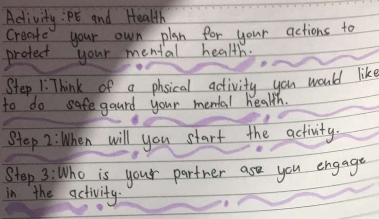 Activity :PE and Health
Create your own plan for your actions to
protect your mental health.
Step 1:Think of a phsical activity you would like
to do safe gaurd your mental health.
Step 2:When will you start the activity.
Step 3:Who is your partner ase you engage
in the activity.